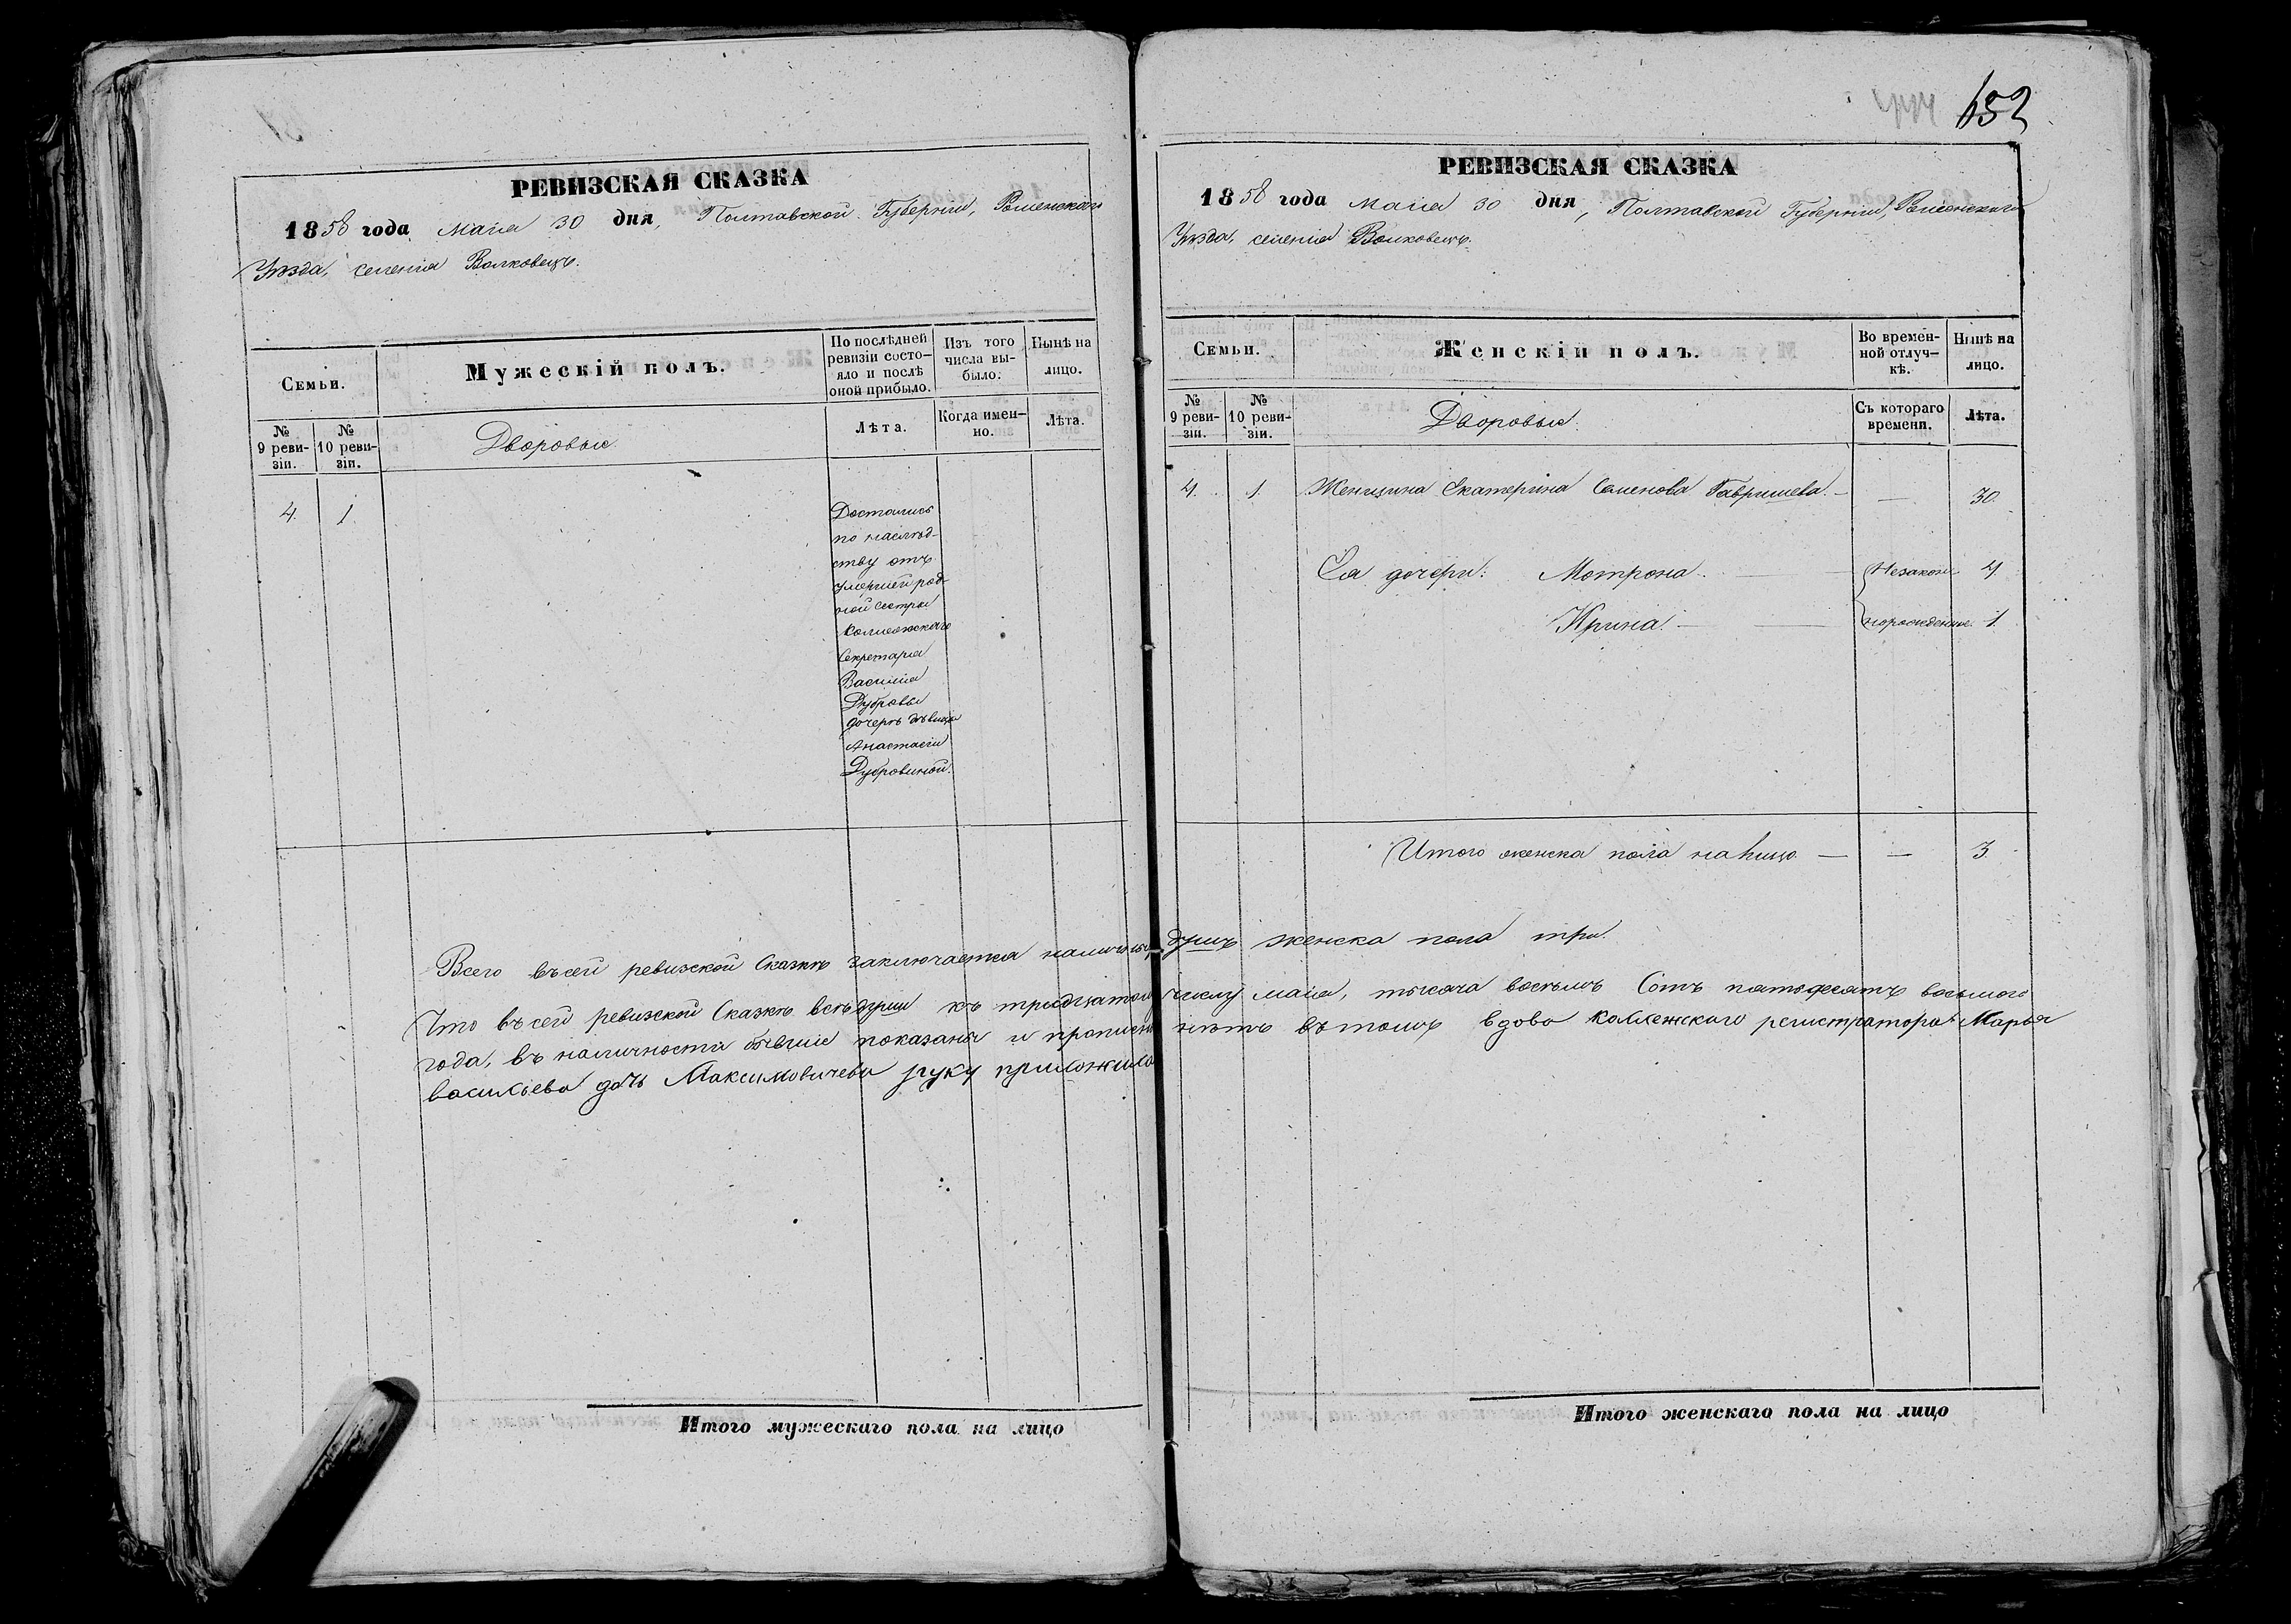 РЕВИЗСКАЯ СКАЗКА
1858 года Маія 30 дня, Полтавской Губерніи, Роменскаго
Уѣзда, селенія Волковецъ.
Семьи.
Мужескій полъ.
По послѣдней
ревизіи состо-
яло и послѣ
оной прибыло.
Изъ того
числа вы-
было.
Нынѣ на
лицо.
№
9 реви-
зіи.
№
10 реви-
зіи.
Дворовые
Лѣта.
Когда имен-
но.
Лѣта.
4. 1
Достались
по наслѣд-
ству отъ
умершей род-
ной сестры
Коллежскаго
Секретаря
Василія
Дубровы
дочери дѣвицы
Анастасіи
Дубровиной.
Итого мужескаго пола на лицо
652
РЕВИЗСКАЯ СКАЗКА
1858 года Маія 30 дня, Полтавской Губерніи, Роменскаго
Уѣзда, селенія Волковецъ.
Семьи.
Женскій полъ.
Во времен-
ной отлуч-
кѣ.
Нынѣ на
лицо.
№
9 реви-
зіи.
№
10 реви-
зіи.
Дворовые.
Съ котораго
времени.
Лѣта.
4. 1. Женщина Екатерина Семенова Гавришева. — — 30.
Ея дочери: Мотрона. — Незакон 4
Ирина. — норожденные. 1.
Итого женска пола на лицо — — 3.
Всего въ сей ревизской Сказкѣ заключается наличныхъ душъ женска пола три.
Что въ сей ревизской Сказкѣ всѣ души къ тридцатому числу маія, тысяча восемь Сотъ пятьдесятъ восьмого
года, въ наличности бывшіе показаны и прописныхъ нѣтъ въ томъ вдова коллежскаго регистратора Марья
васильева дочь Максимовичева руку приложила
Итого женскаго пола на лицо